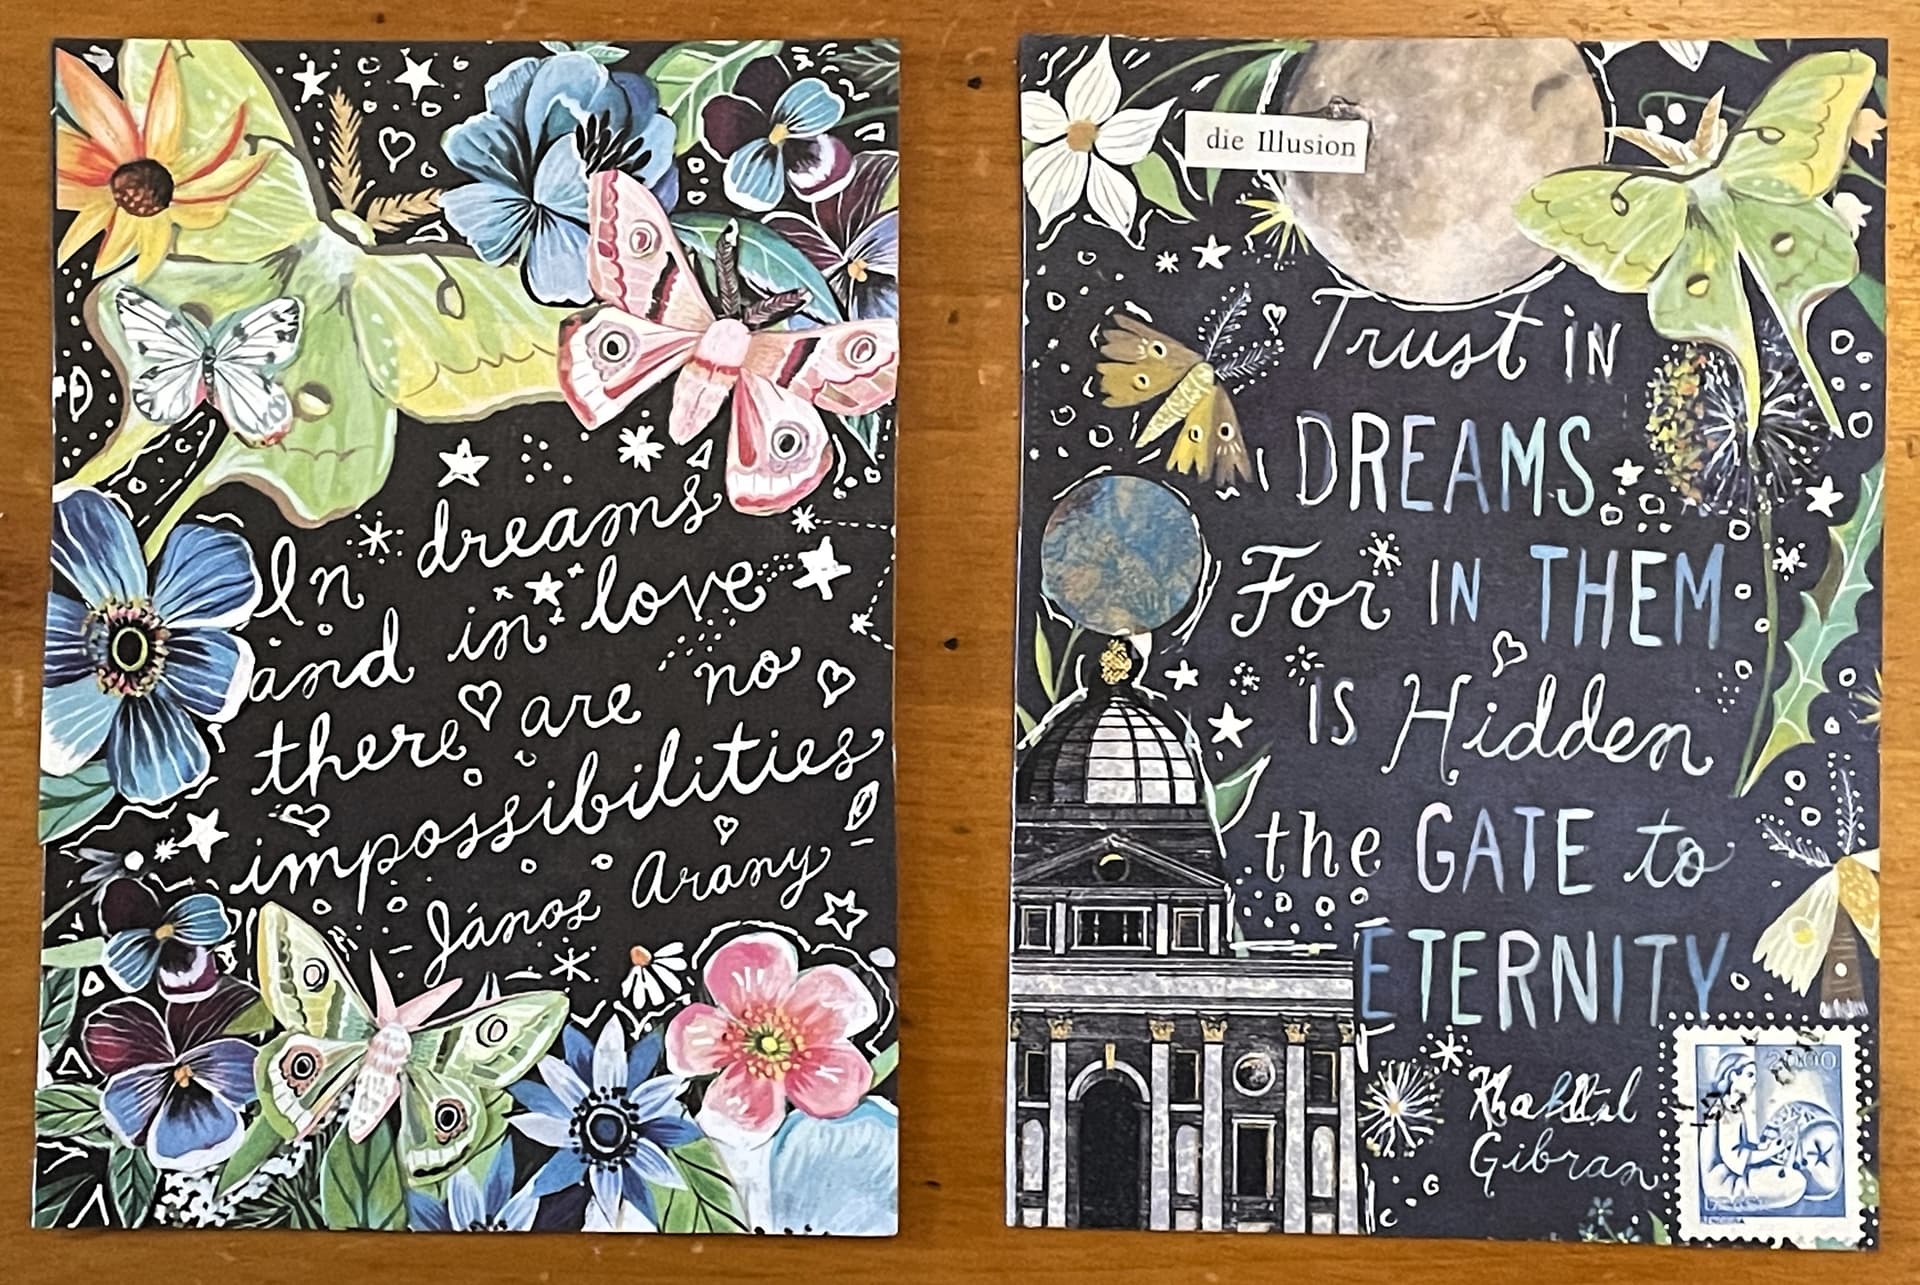 In dreams
and in love
there are no
impossibilities
- János Arany
die Illusion
Trust in
DREAMS
For IN THEM
IS Hidden
the GATE to
ETERNITY
Gibran
2000